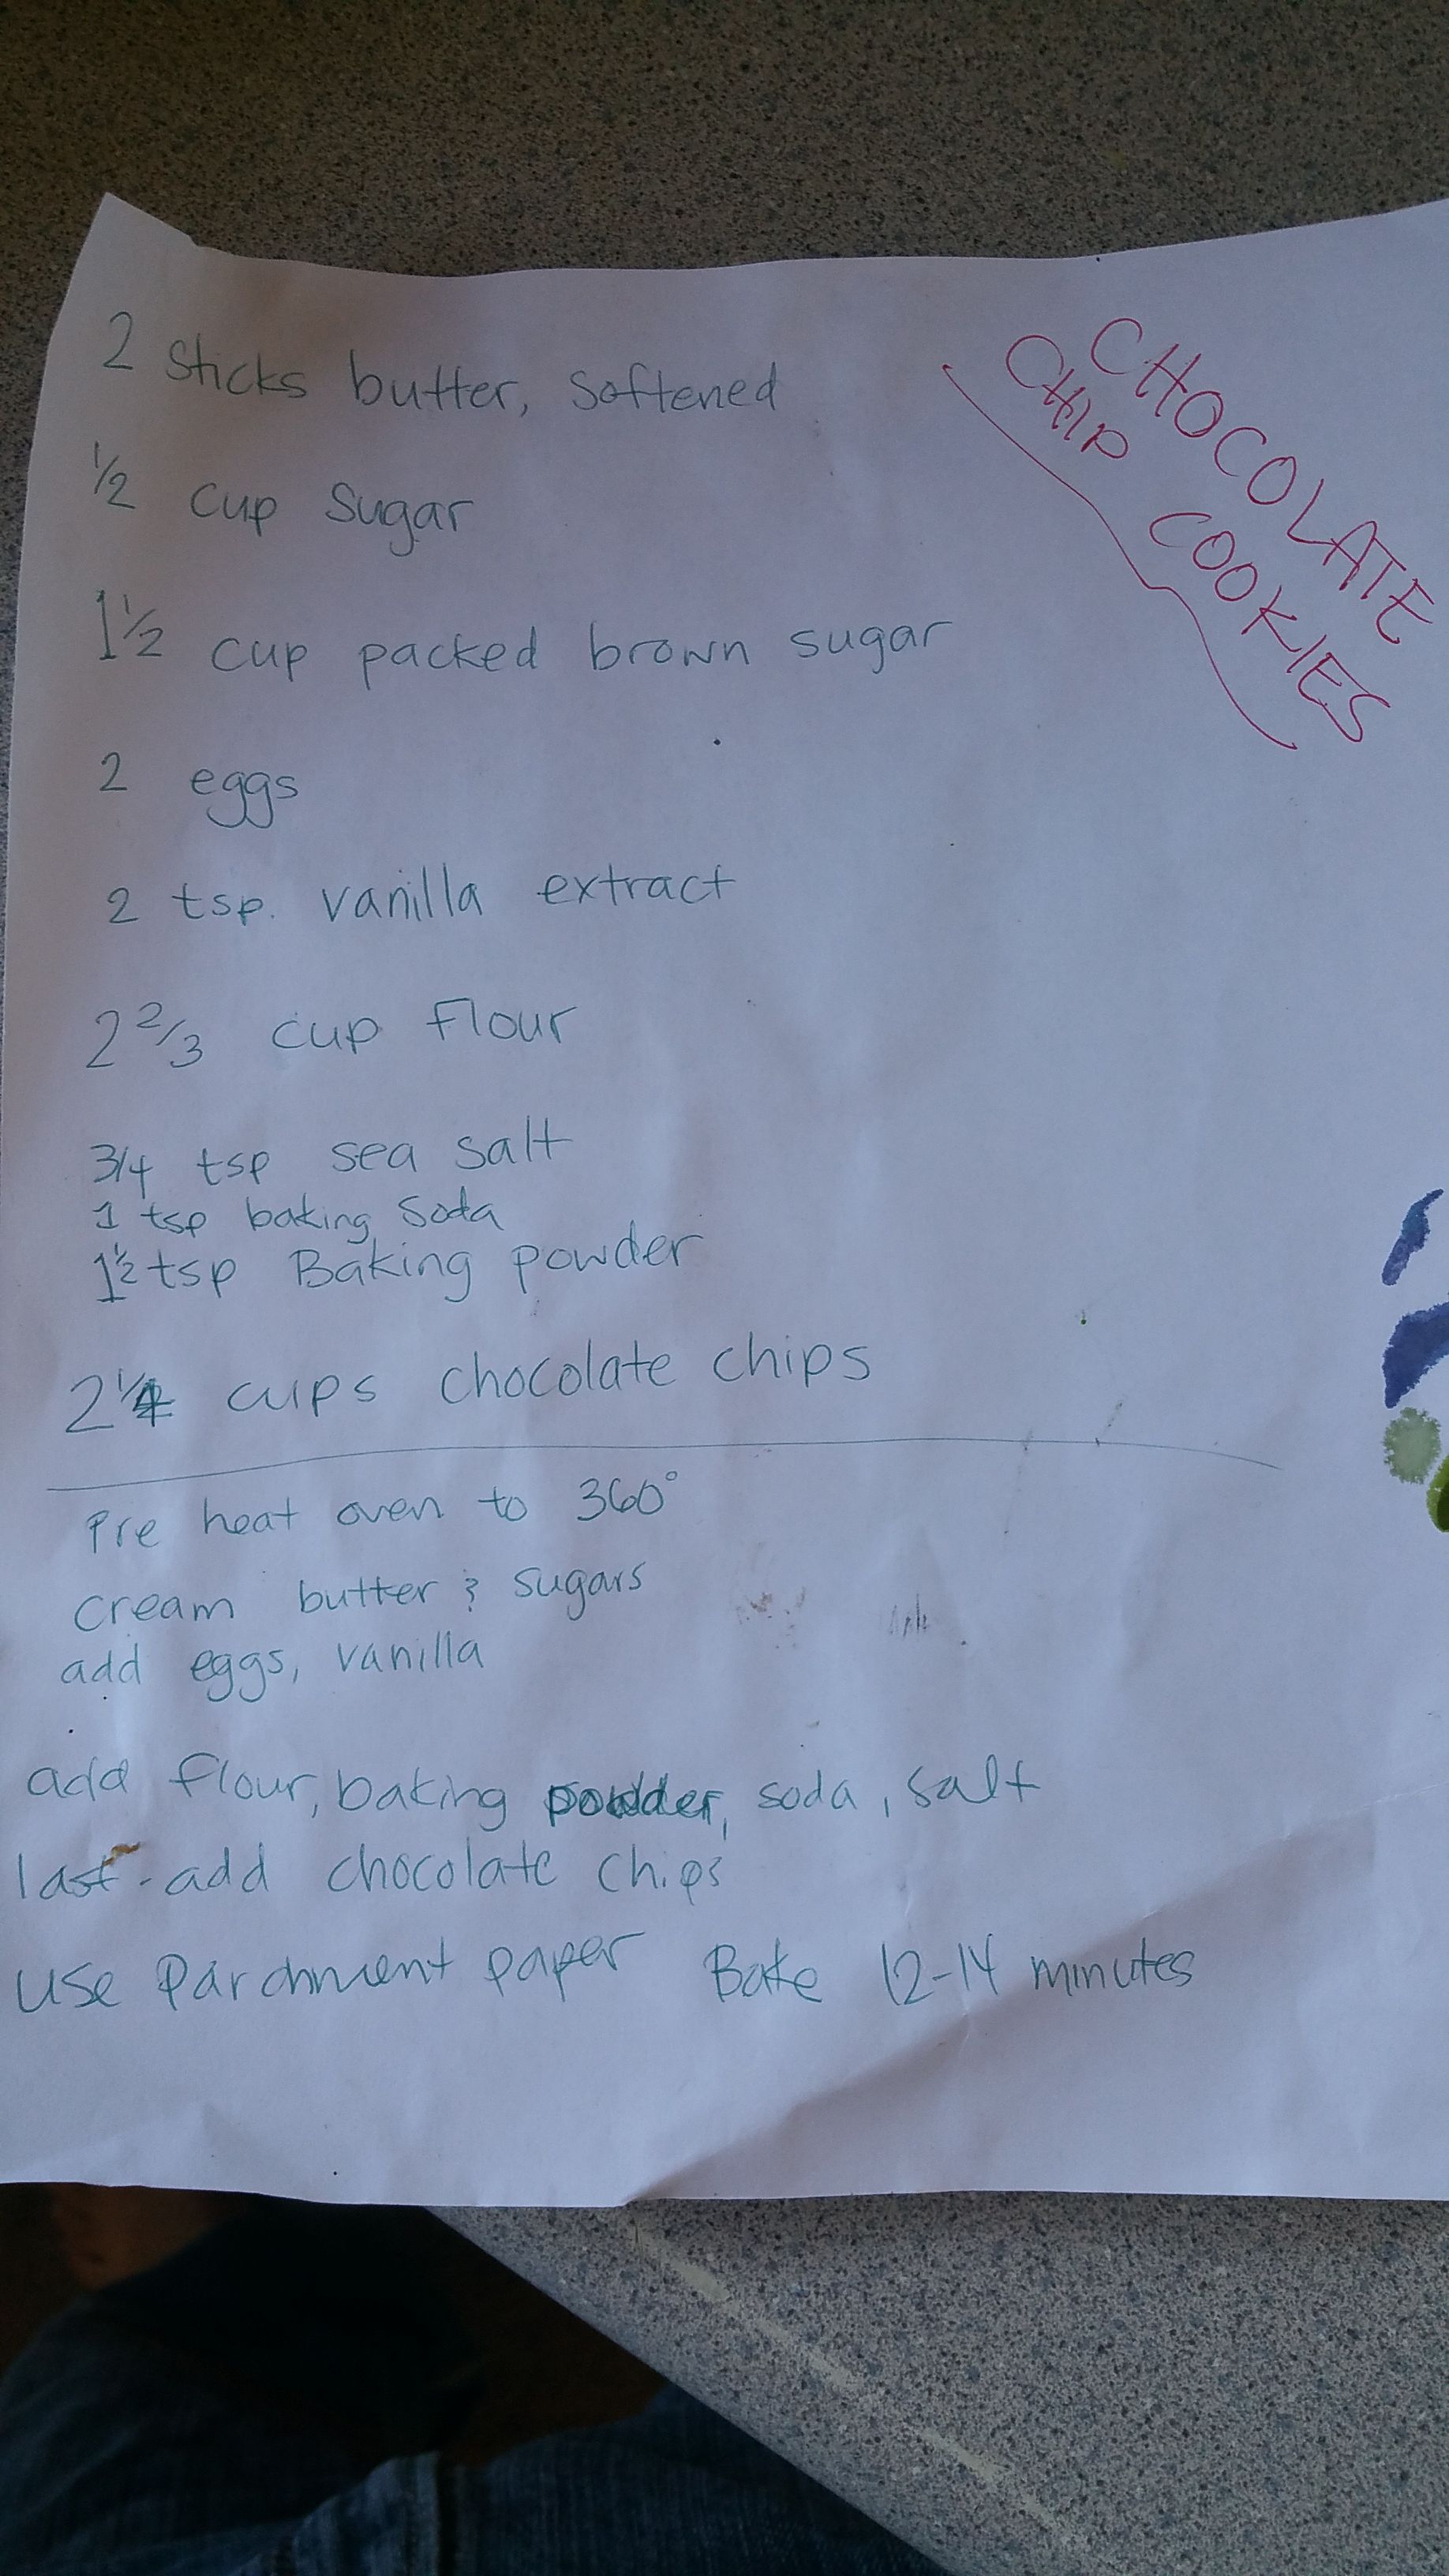 CHOCOLATE
CHIP COOKIES
2 sticks butter, softened
1/2 cup sugar
1 1/2 cup packed brown sugar
2 eggs
2 tsp. vanilla extract
2 2/3 cup flour
3/4 tsp sea salt
1 tsp baking soda
1 1/2 tsp Baking powder
2 1/4 cups chocolate chips
Pre heat oven to 360°
cream butter & sugars
add eggs, vanilla
add flour, baking powder, soda, salt
last - add chocolate chips
use parchment paper Bake 12-14 minutes